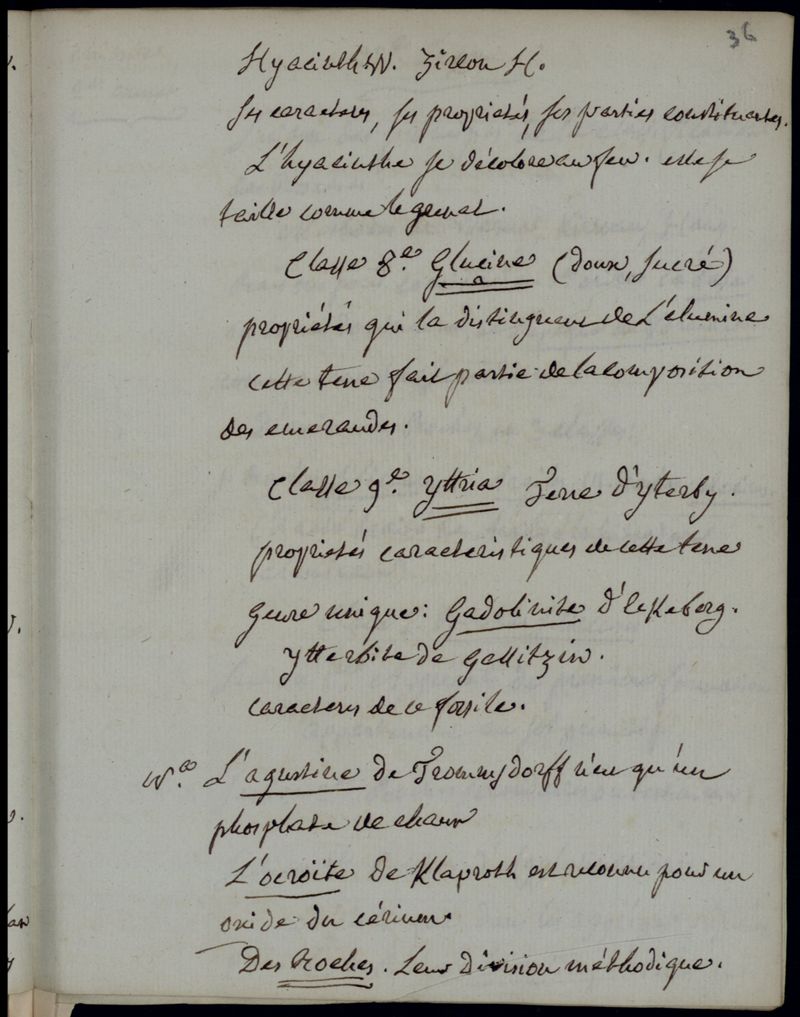 36
Hyacinth W. Zircon H.
ses caracteres, ses proprietés, ses parties constituantes.
L'hyacinthe se décolore au feu. elle se
taille comme le grenat.
Classe 8.e Glucine (doux, sucré)
propriétés qui la distinguent de L'alumine
cette terre fait partie de la composition
des emeraudes.
Classe 9.e yttria Terre d'yterby.
proprietés caracteristiques de cette terre
Genre unique: Gadolinite d'Ekeberg.
ytterbite de Gallitzin.
caracteres de ce fossile.
N.a L'agustine de Trommsdorff n'est qu'un
phosphate de chaux
L'ocroïte de Klaproth est reconnu pour un
oxide du cérium.
Des Roches. Leur division méthodique.